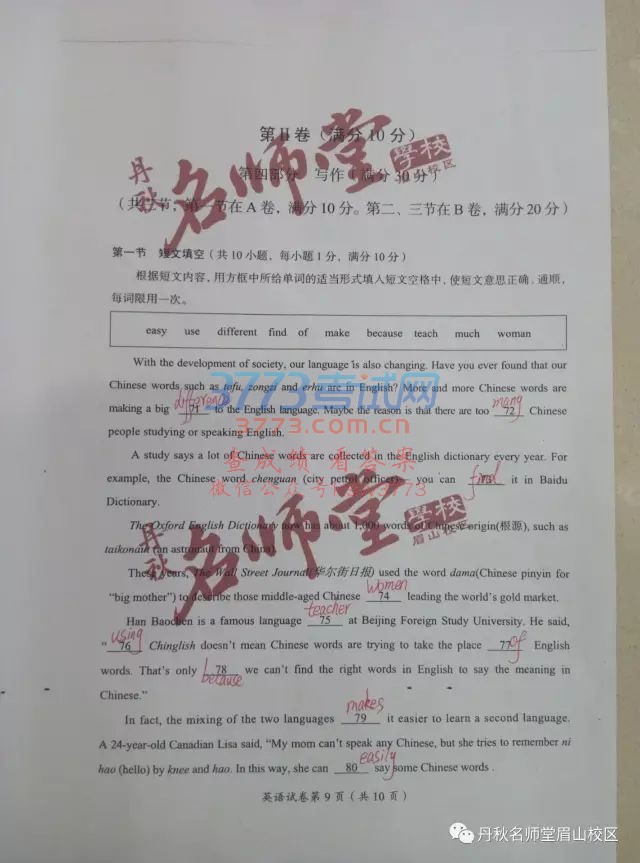 第II卷（满分10分）
丹秋名师堂学校眉山校区
第四部分 写作（满分30分）
（共三节，第一节在A卷，满分10分。第二、三节在B卷，满分20分）
第一节 短文填空（共10小题，每小题1分，满分10分）
根据短文内容，用方框中所给单词的适当形式填入短文空格中，使短文意思正确、通顺，
每词限用一次。
easy use different find of make because teach much woman
With the development of society, our language is also changing. Have you ever found that our
Chinese words such as tofu, zongzi and erhu are in English? More and more Chinese words are
making a big 71 difference to the English language. Maybe the reason is that there are too 72 many Chinese
people studying or speaking English.
3773考试网
3773.com.cn
查成绩 看答案
A study says a lot of Chinese words are collected in the English dictionary every year. For
example, the Chinese word chengguan (city petrol officer) you can find it in Baidu
Dictionary.
The Oxford English Dictionary now has about 1,000 words of Chinese origin(根源), such as
taikonaut (an astronaut from China).
丹秋名师堂学校眉山校区
These years, The Wall Street Journal(华尔街日报) used the word dama(Chinese pinyin for
“big mother”) to describe those middle-aged Chinese 74 women leading the world's gold market.
Han Baochen is a famous language 75 teacher at Beijing Foreign Study University. He said,
“ 76 using Chinglish doesn't mean Chinese words are trying to take the place 77 of English
words. That's only 78 because we can't find the right words in English to say the meaning in
Chinese.”
In fact, the mixing of the two languages 79 makes it easier to learn a second language.
A 24-year-old Canadian Lisa said, “My mom can't speak any Chinese, but she tries to remember ni
hao (hello) by knee and hao. In this way, she can 80 easily say some Chinese words .
英语试卷第9页（共10页）
丹秋名师堂眉山校区